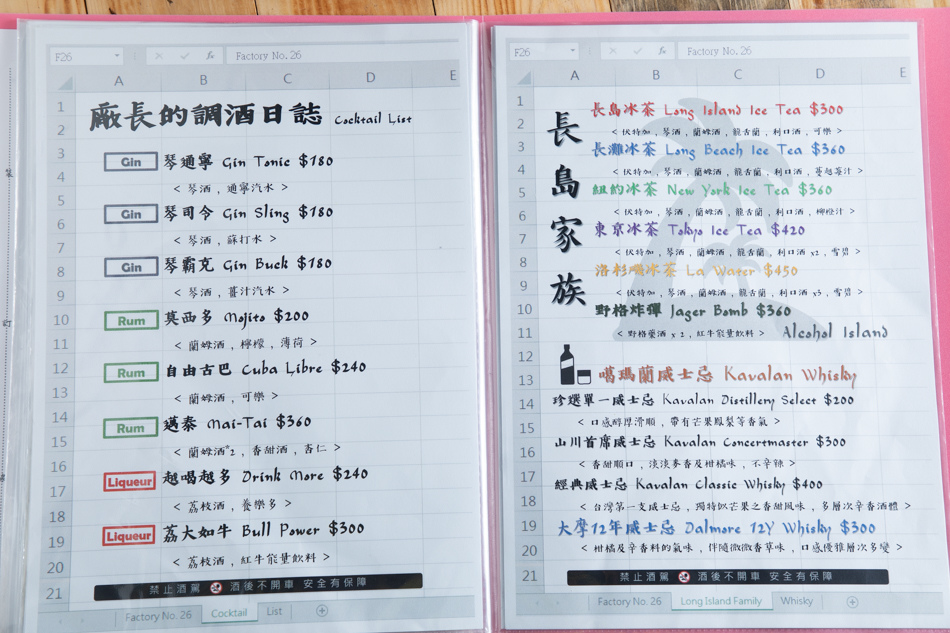 F26 fx Factory No. 26
A B C D E
1
2
3
4
5
6
7
8
9
10
11
12
13
14
15
16
17
18
19
20
21
廠長的調酒日誌 Cocktail List
Gin 琴通寧 Gin Tonic $180
< 琴酒 , 通寧汽水 >
Gin 琴司令 Gin Sling $180
< 琴酒 , 蘇打水 >
Gin 琴霸克 Gin Buck $180
< 琴酒 , 薑汁汽水 >
Rum 莫西多 Mojito $200
< 蘭姆酒 , 檸檬 , 薄荷 >
Rum 自由古巴 Cuba Libre $240
< 蘭姆酒 , 可樂 >
Rum 邁泰 Mai-Tai $360
< 蘭姆酒*2 , 香甜酒 , 杏仁 >
Liqueur 越喝越多 Drink More $240
< 荔枝酒 , 養樂多 >
Liqueur 荔大如牛 Bull Power $300
< 荔枝酒 , 紅牛能量飲料 >
禁止酒駕 酒後不開車 安全有保障
Factory No. 26 Cocktail List
F26 fx Factory No. 26
A B C D E
1
2
3
4
5
6
7
8
9
10
11
12
13
14
15
16
17
18
19
20
21
長島家族
長島冰茶 Long Island Ice Tea $300
< 伏特加 , 琴酒 , 蘭姆酒 , 龍舌蘭 , 利口酒 , 可樂 >
長灘冰茶 Long Beach Ice Tea $360
< 伏特加 , 琴酒 , 蘭姆酒 , 龍舌蘭 , 利口酒 , 蔓越莓汁 >
紐約冰茶 New York Ice Tea $360
< 伏特加 , 琴酒 , 蘭姆酒 , 龍舌蘭 , 利口酒 , 柳橙汁 >
東京冰茶 Tokyo Ice Tea $420
< 伏特加 , 琴酒 , 蘭姆酒 , 龍舌蘭 , 利口酒 x2 , 雪碧 >
洛杉磯冰茶 La Water $450
< 伏特加 , 琴酒 , 蘭姆酒 , 龍舌蘭 , 利口酒 x3 , 雪碧 >
野格炸彈 Jager Bomb $360
< 野格藥酒 x 2 , 紅牛能量飲料 > Alcohol Island
噶瑪蘭威士忌 Kavalan Whisky
珍選單一威士忌 Kavalan Distillery Select $200
< 口感醇厚滑順 , 帶有芒果鳳梨等香氣 >
山川首席威士忌 Kavalan Concertmaster $300
< 香甜順口 , 淡淡麥香及柑橘味 , 不辛辣 >
經典威士忌 Kavalan Classic Whisky $400
< 台灣第一支威士忌 , 獨特似芒果之香甜風味 , 多層次辛香酒體 >
大摩12年威士忌 Dalmore 12Y Whisky $300
< 柑橘及辛香料的氣味 , 伴隨微微香草味 , 口感優雅層次多變 >
禁止酒駕 酒後不開車 安全有保障
Factory No. 26 Long Island Family Whisky